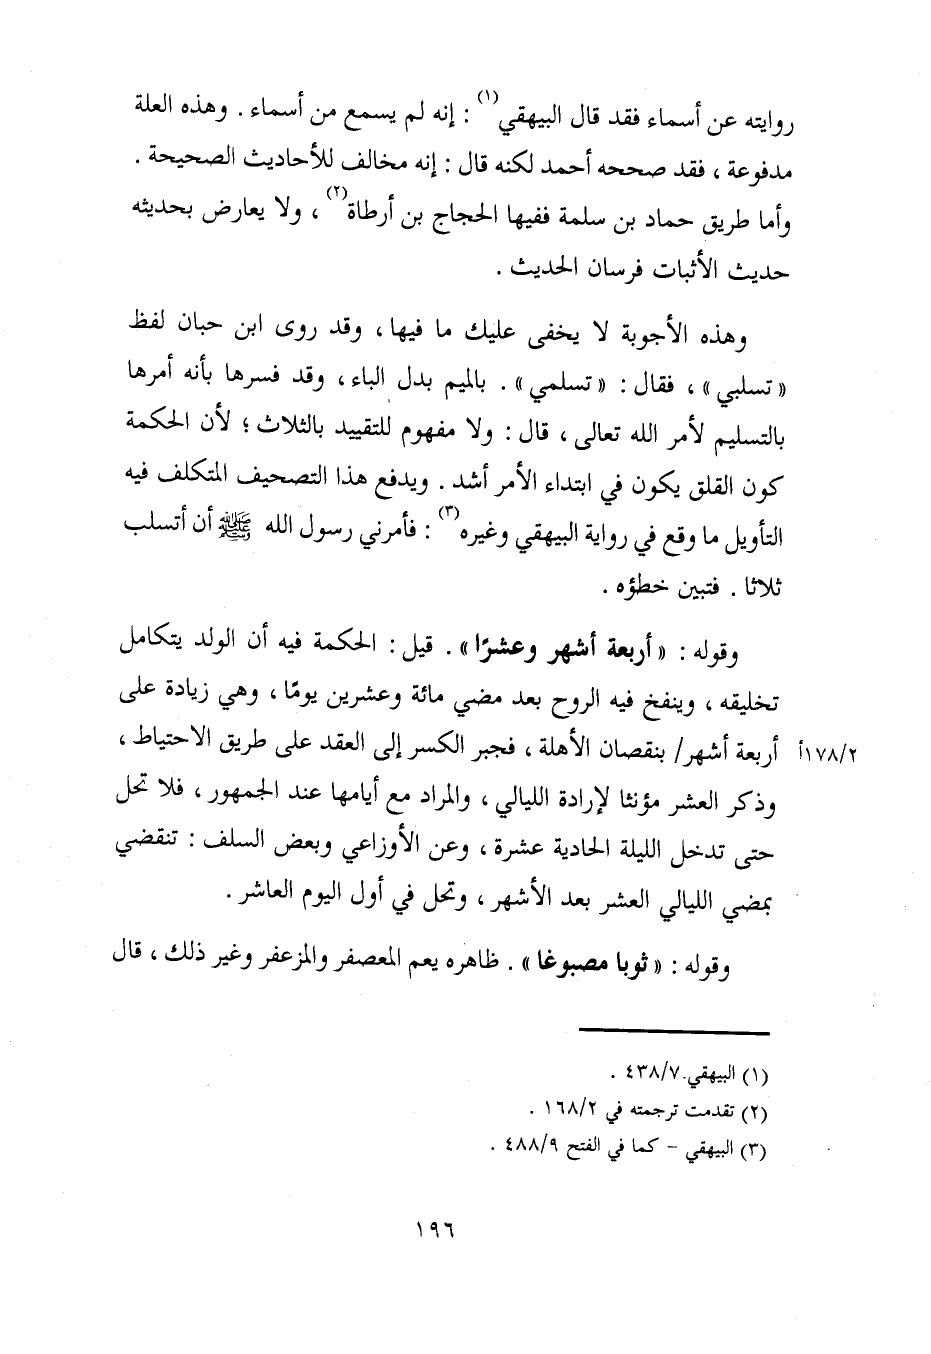 روايته عن أسماء فقد قال البيهقي(١) : إنه لم يسمع من أسماء . وهذه العلة
مدفوعة ، فقد صححه أحمد لكنه قال : إنه مخالف للأحاديث الصحيحة .
وأما طريق حماد بن سلمة ففيها الحجاج بن أرطاة(٢) ، ولا يعارض بحديثه
حديث الأثبات فرسان الحديث .
وهذه الأجوبة لا يخفى عليك ما فيها ، وقد روى ابن حبان لفظ
« تسلبي » ، فقال : « تسلمي » . بالميم بدل الباء ، وقد فسرها بأنه أمرها
بالتسليم لأمر الله تعالى ، قال : ولا مفهوم للتقييد بالثلاث ؛ لأن الحكمة
كون القلق يكون في ابتداء الأمر أشد . ويدفع هذا التصحيف المتكلف فيه
التأويل ما وقع في رواية البيهقي وغيره(٣) : فأمرني رسول الله ﷺ أن أتسلب
ثلاثا . فتبين خطؤه .
وقوله : « أربعة أشهر وعشرًا » . قيل : الحكمة فيه أن الولد يتكامل
تخليقه ، وينفخ فيه الروح بعد مضي مائة وعشرين يومًا ، وهي زيادة على
١٧٨/٢أ أربعة أشهر/ بنقصان الأهلة ، فجبر الكسر إلى العقد على طريق الاحتياط ،
وذكر العشر مؤنثا لإرادة الليالي ، والمراد مع أيامها عند الجمهور ، فلا تحل
حتى تدخل الليلة الحادية عشرة ، وعن الأوزاعي وبعض السلف : تنقضي
بمضي الليالي العشر بعد الأشهر ، وتحل في أول اليوم العاشر .
وقوله : « ثوبا مصبوغا » . ظاهره يعم المعصفر والمزعفر وغير ذلك ، قال
(١) البيهقي ٤٣٨/٧ .
(٢) تقدمت ترجمته في ١٦٨/٢ .
(٣) البيهقي - كما في الفتح ٤٨٨/٩ .
١٩٦